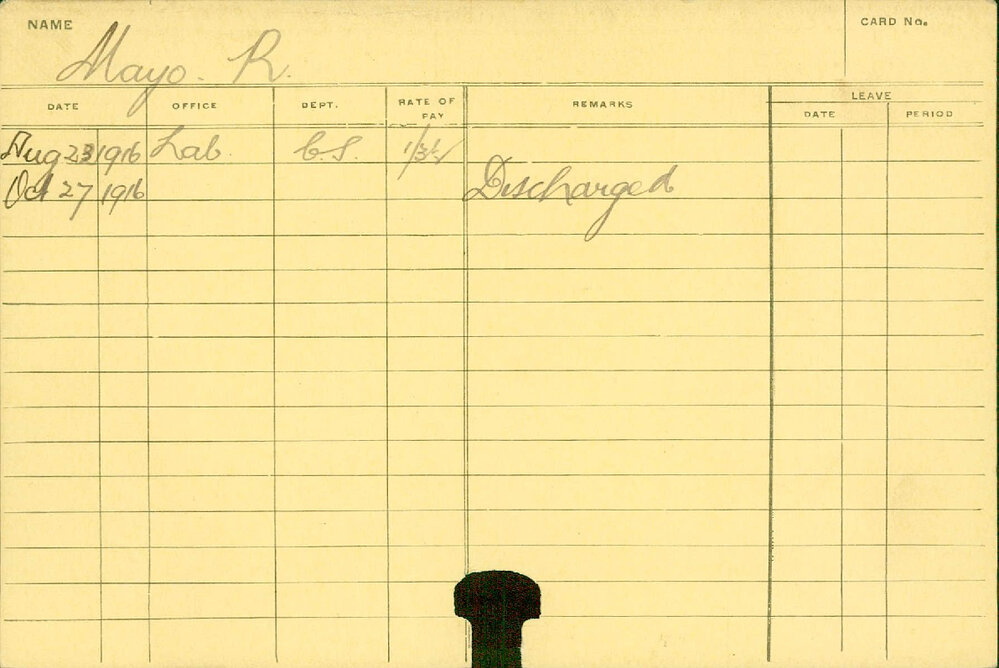 NAME
CARD No.
Mayo. R.
DATE OFFICE DEPT. RATE OF PAY REMARKS LEAVE
DATE PERIOD
Aug 23 1916 Lab. C.S.
Oct 27 1916 Discharged